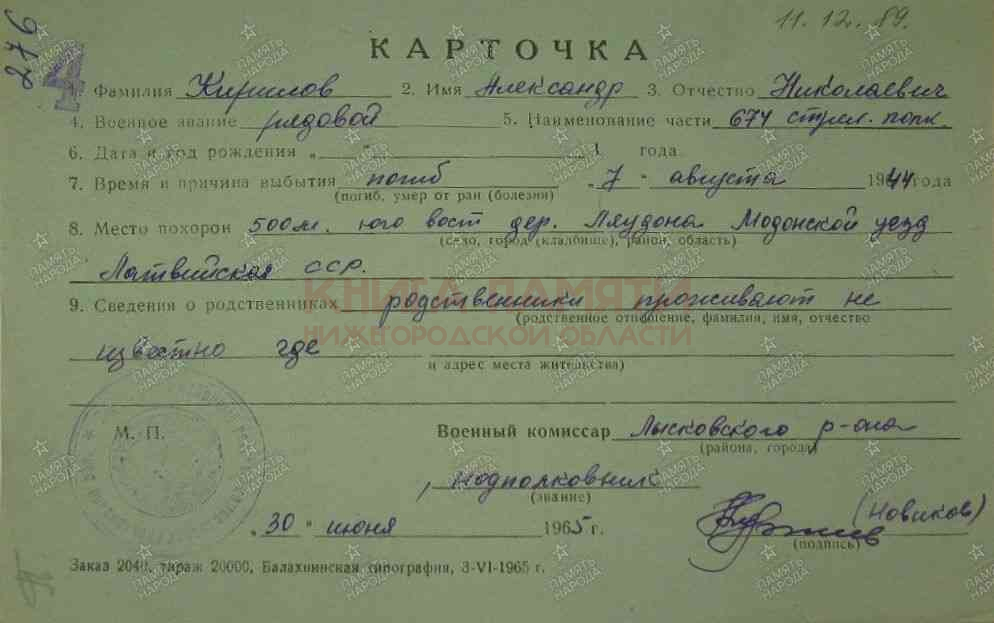 276
4
11.12.89.
КАРТОЧКА
1. Фамилия Кирилов 2. Имя Александр 3. Отчество Николаевич
4. Военное звание рядовой 5. Наименование части 674 стрел. полк.
6. Дата и год рождения „ " 1 года.
7. Время и причина выбытия погиб „ 7 " августа 1944 года
(погиб, умер от ран (болезни)
8. Место похорон 500м. юго вост дер. Ляудона Модонской уезд
(село, город (кладбище), район, область)
Латвийская сср.
9. Сведения о родственниках родственники проживают не
(родственное отношение, фамилия, имя, отчество
известно где
и адрес места жительства)
КНИГА ПАМЯТИ
НИЖЕГОРОДСКОЙ ОБЛАСТИ
М. П.
Военный комиссар Лысковского р-она
(района, города)
подполковник
(звание)
„ 30 " июня 1965 г.
(Новиков)
(подпись)
Заказ 2040, тираж 20000, Балахнинская типография, 3-VI-1965 г.
ПАМЯТЬ НАРОДА